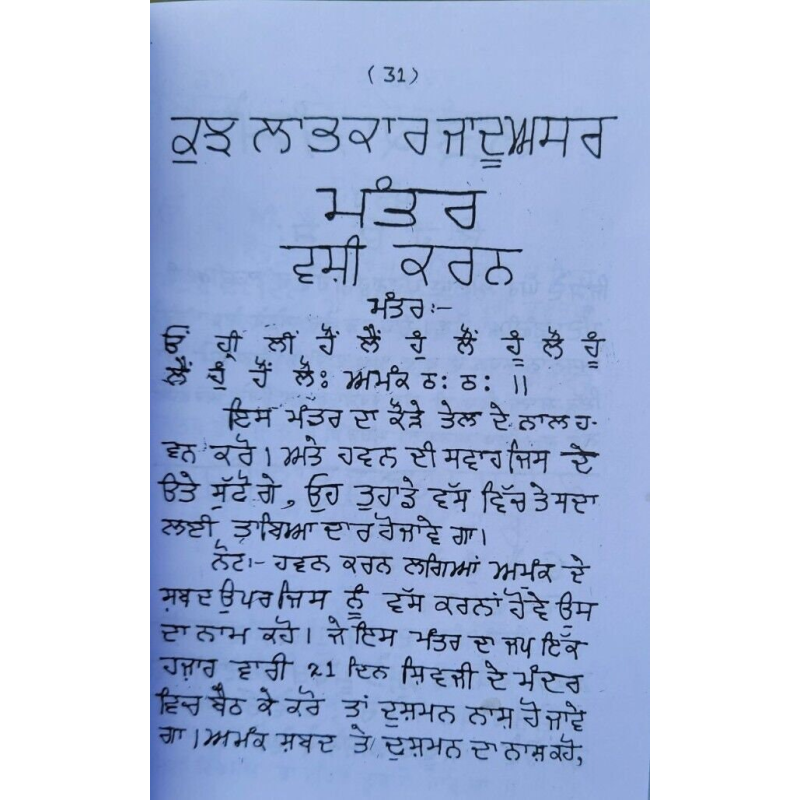 (31)
ਕੁਝ ਲਾਭਕਾਰ ਜਾਦੂਅਸਰ
ਮੰਤਰ
ਵਸ਼ੀ ਕਰਨ
ਮੰਤਰ:-
ਓਂ ਹ੍ਰੀਂ ਲੀਂ ਹੌਂ ਲੌਂ ਹੁੰ ਲੌਂ ਹੂੰ ਲੌਂ ਹੂੰ
ਲੌਂ ਹੁੰ ਹੌਂ ਲੌਂ: ਅਮੰਕ ਠ: ਠ: ।।
ਇਸ ਮੰਤਰ ਦਾ ਕੌੜੇ ਤੇਲ ਦੇ ਨਾਲ ਹ-
ਵਨ ਕਰੋ। ਅਤੇ ਹਵਨ ਦੀ ਸਵਾਹ ਜਿਸ ਦੇ
ਉਤੇ ਸੁੱਟੋ ਗੇ, ਉਹ ਤੁਹਾਡੇ ਵੱਸ ਵਿੱਚ ਤੇ ਸਦਾ
ਲਈ ਤਾਬਿਆ ਦਾਰ ਹੋ ਜਾਵੇ ਗਾ।
ਨੋਟ:- ਹਵਨ ਕਰਨ ਲਗਿਆਂ ਅਮੰਕ ਦੇ
ਸ਼ਬਦ ਉਪਰ ਜਿਸ ਨੂੰ ਵੱਸ ਕਰਨਾਂ ਹੋਵੇ ਉਸ
ਦਾ ਨਾਮ ਕਹੋ। ਜੇ ਇਸ ਮੰਤਰ ਦਾ ਜਪ ਇੱਕ
ਹਜ਼ਾਰ ਵਾਰੀ 21 ਦਿਨ ਸ਼ਿਵਜੀ ਦੇ ਮੰਦਰ
ਵਿਚ ਬੈਠ ਕੇ ਕਰੋ ਤਾਂ ਦੁਸ਼ਮਨ ਨਾਸ਼ ਹੋ ਜਾਵੇ
ਗਾ। ਅਮੰਕ ਸ਼ਬਦ ਤੇ ਦੁਸ਼ਮਨ ਦਾ ਨਾਸ਼ ਕਹੋ,